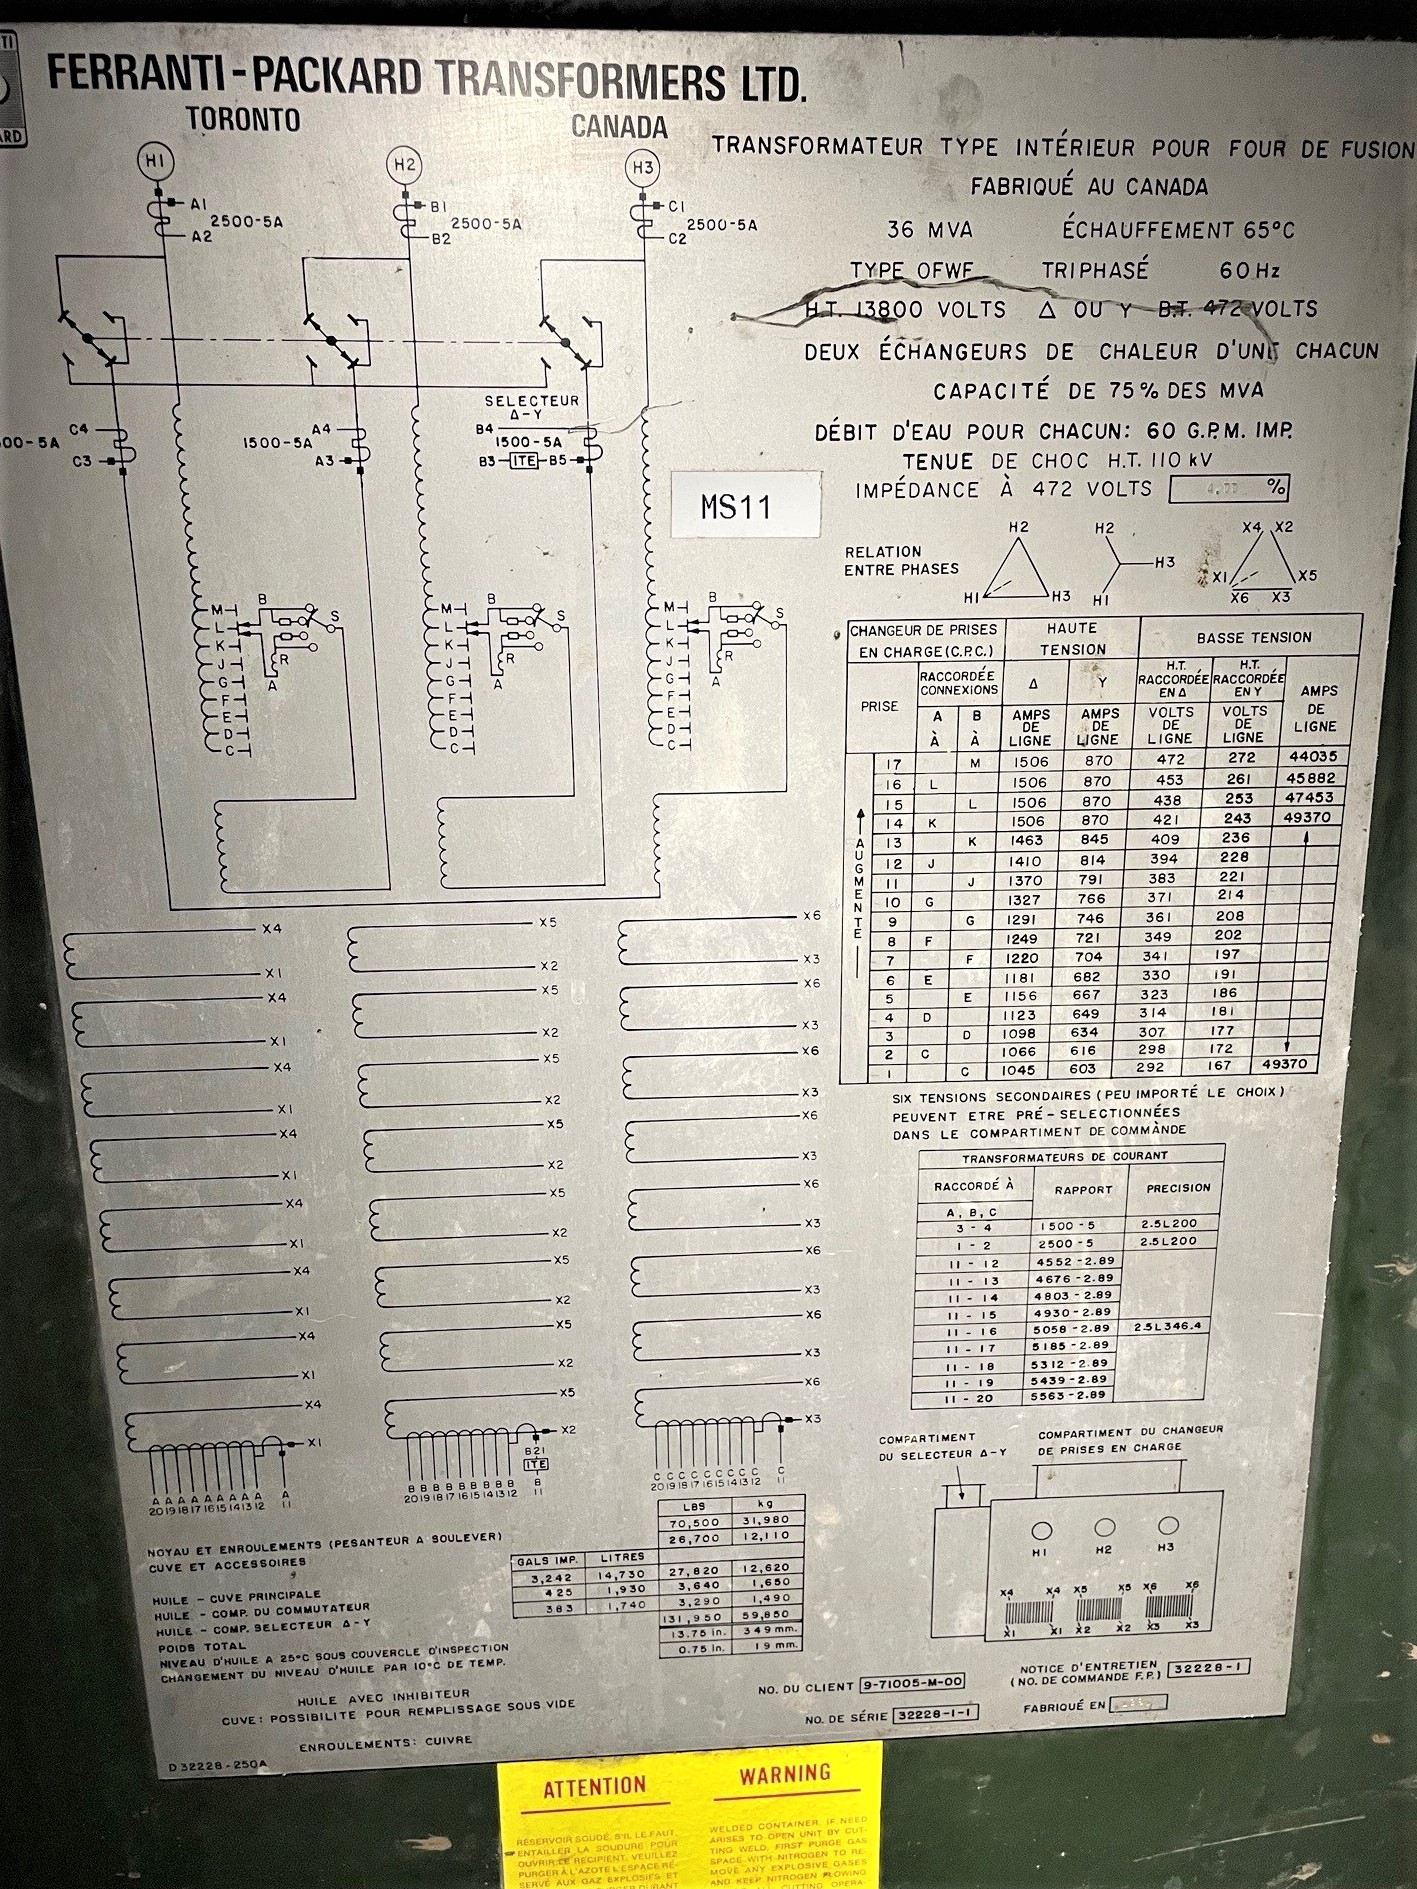 FERRANTI-PACKARD TRANSFORMERS LTD.
TORONTO CANADA
TRANSFORMATEUR TYPE INTÉRIEUR POUR FOUR DE FUSION
FABRIQUÉ AU CANADA
36 MVA ÉCHAUFFEMENT 65°C
TYPE OFWF TRIPHASÉ 60 Hz
H.T. 13800 VOLTS Δ OU Y B.T. 472 VOLTS
DEUX ÉCHANGEURS DE CHALEUR D'UNE CHACUN
CAPACITÉ DE 75% DES MVA
DÉBIT D'EAU POUR CHACUN: 60 G.P.M. IMP.
TENUE DE CHOC H.T. 110 kV
IMPÉDANCE À 472 VOLTS %
H1 H2 H3
A1 2500-5A B1 2500-5A C1 2500-5A
A2 B2 C2
SELECTEUR
Δ-Y
C4 A4 B4
00-5A 1500-5A 1500-5A
C3 A3 B3 ITE B5
MS11
RELATION
ENTRE PHASES
H2 H2 X4 X2
H3 X1 X5
H1 H3 H1 X6 X3
M B S M B S M B S
L L L
K K K
J R J R J R
G A G A G A
F F F
E E E
D D D
C C C
CHANGEUR DE PRISES HAUTE BASSE TENSION
EN CHARGE (C.P.C.) TENSION
PRISE RACCORDÉE CONNEXIONS Δ Y H.T. RACCORDÉE EN Δ H.T. RACCORDÉE EN Y AMPS DE LIGNE
A À B À AMPS DE LIGNE AMPS DE LIGNE VOLTS DE LIGNE VOLTS DE LIGNE
AUGMENTE
17 M 1506 870 472 272 44035
16 L 1506 870 453 261 45882
15 L 1506 870 438 253 47453
14 K 1506 870 421 243 49370
13 K 1463 845 409 236
12 J 1410 814 394 228
11 J 1370 791 383 221
10 G 1327 766 371 214
9 G 1291 746 361 208
8 F 1249 721 349 202
7 F 1220 704 341 197
6 E 1181 682 330 191
5 E 1156 667 323 186
4 D 1123 649 314 181
3 D 1098 634 307 177
2 C 1066 616 298 172
1 C 1045 603 292 167 49370
SIX TENSIONS SECONDAIRES (PEU IMPORTÉ LE CHOIX)
PEUVENT ETRE PRÉ-SELECTIONNÉES
DANS LE COMPARTIMENT DE COMMÀNDE
TRANSFORMATEURS DE COURANT
RACCORDÉ À RAPPORT PRECISION
A, B, C
3 - 4 1500 - 5 2.5L200
1 - 2 2500 - 5 2.5L200
11 - 12 4552 - 2.89
11 - 13 4676 - 2.89
11 - 14 4803 - 2.89
11 - 15 4930 - 2.89
11 - 16 5058 - 2.89 2.5L346.4
11 - 17 5185 - 2.89
11 - 18 5312 - 2.89
11 - 19 5439 - 2.89
11 - 20 5563 - 2.89
X4 X5 X6
X1 X2 X3
X4 X5 X6
X1 X2 X3
X4 X5 X6
X1 X2 X3
X4 X5 X6
X1 X2 X3
X4 X5 X6
X1 X2 X3
X4 X5 X6
X1 X2 X3
X4 X5 X6
X1 X2 X3
X4 X5 X6
X1 X2 X3
B21
ITE
A A A A A A A A A B B B B B B B B B B C C C C C C C C C C
20 19 18 17 16 15 14 13 12 11 20 19 18 17 16 15 14 13 12 11 20 19 18 17 16 15 14 13 12 11
COMPARTIMENT
DU SELECTEUR Δ-Y
COMPARTIMENT DU CHANGEUR
DE PRISES EN CHARGE
H1 H2 H3
X4 X4 X5 X5 X6 X6
X1 X1 X2 X2 X3 X3
LBS kg
NOYAU ET ENROULEMENTS (PESANTEUR A SOULEVER) 70,500 31,980
CUVE ET ACCESSOIRES 26,700 12,110
GALS IMP. LITRES
HUILE - CUVE PRINCIPALE 3,242 14,730 27,820 12,620
HUILE - COMP. DU COMMUTATEUR 425 1,930 3,640 1,650
HUILE - COMP. SELECTEUR Δ-Y 383 1,740 3,290 1,490
POIDS TOTAL 131,950 59,850
NIVEAU D'HUILE A 25°C SOUS COUVERCLE D'INSPECTION 13.75 in. 349 mm.
CHANGEMENT DU NIVEAU D'HUILE PAR 10°C DE TEMP. 0.75 in. 19 mm.
HUILE AVEC INHIBITEUR
CUVE: POSSIBILITE POUR REMPLISSAGE SOUS VIDE
ENROULEMENTS: CUIVRE
D 32228-250A
NO. DU CLIENT 9-71005-M-00
NO. DE SÉRIE 32228-1-1
NOTICE D'ENTRETIEN
(NO. DE COMMANDE F.P.) 32228-1
FABRIQUÉ EN
ATTENTION
RÉSERVOIR SOUDÉ. S'IL LE FAUT,
ENTAILLER LA SOUDURE POUR
OUVRIR LE RECIPIENT. VEUILLEZ
PURGER À L'AZOTE L'ESPACE RÉ-
SERVÉ AUX GAZ EXPLOSIFS ET
WARNING
WELDED CONTAINER. IF NEED
ARISES TO OPEN UNIT BY CUT-
TING WELD, FIRST PURGE GAS
SPACE WITH NITROGEN TO RE-
MOVE ANY EXPLOSIVE GASES
AND KEEP NITROGEN FLOWING
CUTTING OPERA-